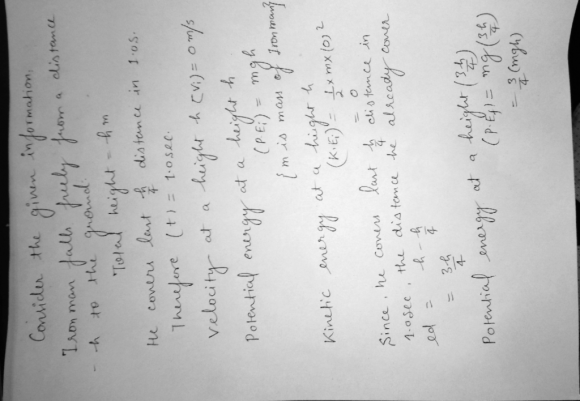 Consider the given information,
Ironman falls freely from a distance
- h to the ground.
Total height = h m
He covers last h/4 distance in 1.0s.
Therefore (t) = 1.0sec.
Velocity at a height h (Vi) = 0 m/s
Potential energy at a height h
(P.Ei) = mgh
{m is mass of Ironman}
Kinetic energy at a height h
(K.Ei) = 1/2 x m x (0)²
= 0
Since, he covers last h/4 distance in
1.0sec, the distance he already cover
ed = h - h/4
= 3h/4
Potential energy at a height (3h/4)
(P.Ef) = mg (3h/4)
= 3/4 (mgh)